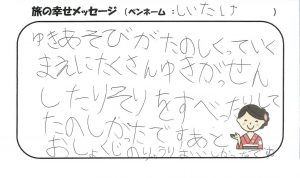 旅の幸せメッセージ (ペンネーム:しいたけ )
ゆきあそびがたのしくっていく
まえにたくさんゆきがっせん
したりそりをすべったりして
たのしかったですあと
おしょくじのりょうりおいしかったです